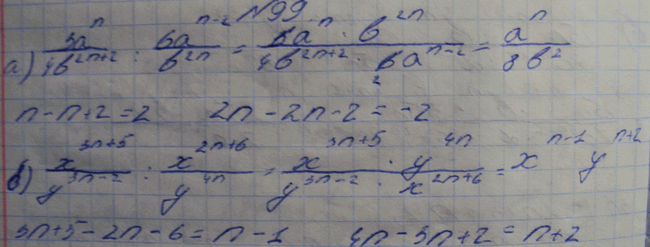 N99
а) 3a^n / 4b^{2n+2} : 6a^{n-2} / b^{2n} = 3a^n · b^{2n} / 4b^{2n+2} · 6a^{n-2} = a^n / 8b^2
n-n+2=2 2n-2n-2=-2
в) x^{3n+5} / y^{3n-2} : x^{2n+6} / y^{4n} = x^{3n+5} · y^{4n} / y^{3n-2} · x^{2n+6} = x^{n-1} y^{n+2}
3n+5-2n-6=n-1 4n-3n+2=n+2